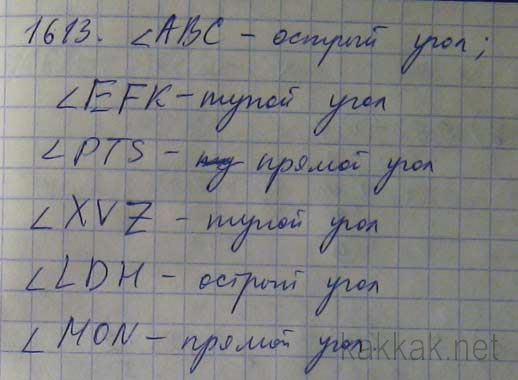 1613. ∠ABC - острый угол;
∠EFK - тупой угол
∠PTS - прямой угол
∠XVZ - тупой угол
∠LDH - острый угол
∠MON - прямой угол
kakkak.net